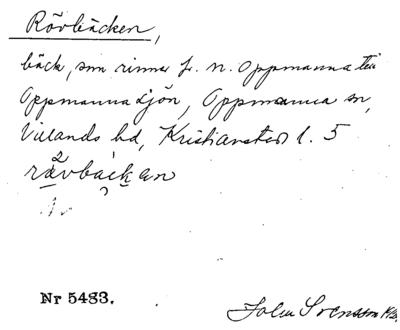 Rövbäcken,
bäck, som rinner fr. n. Oppmanna till
Oppmannasjön, Oppmanna sn,
Vilands hd, Kristianstad l. 5
rävbackan
Nr 5483.
John Svensson